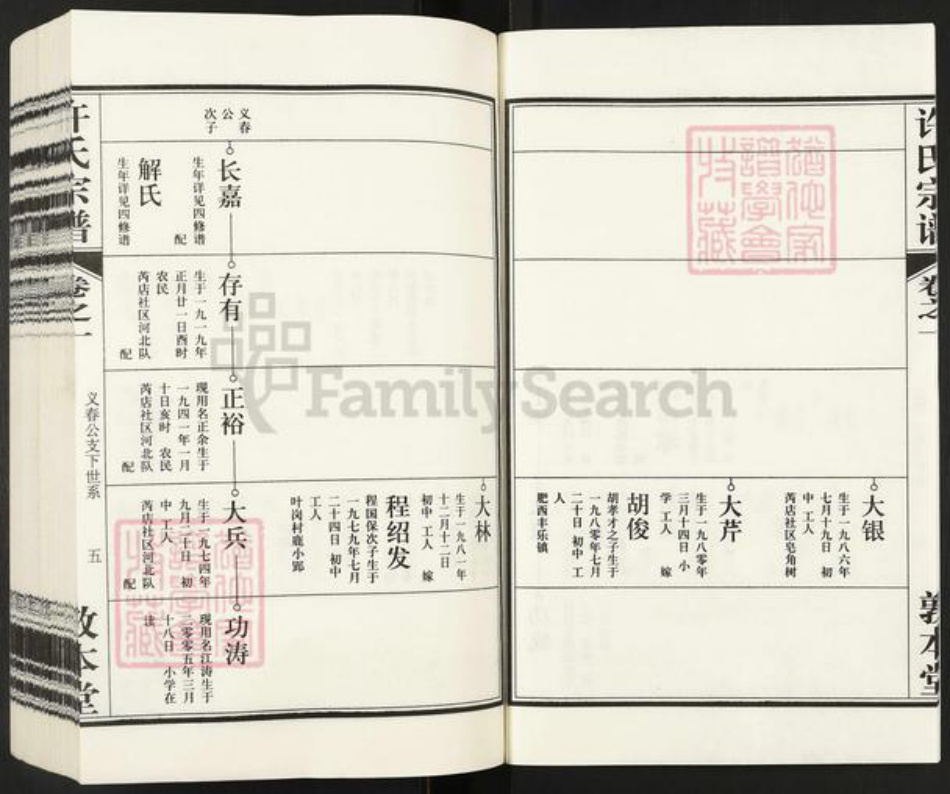 许氏宗谱
卷之一
敦本堂
大银
生于一九八六年
七月十九日 初
中 工人
芮店社区皂角树
大芹
生于一九八〇年
三月十四日 小
学 工人 嫁
胡俊
胡孝才之子生于
一九八〇年七月
二十日 初中 工
人
肥西丰乐镇
大林
生于一九八一年
十二月十二日
初中 工人 嫁
程绍发
程国保次子生于
一九七九年七月
二十四日 初中
工人
叶岗村鹿小郢
义春
公
次子
长嘉
生年详见四修谱
配
解氏
生年详见四修谱
存有
生于一九一九年
正月廿一日酉时
农民
芮店社区河北队
配
正裕
现用名正余生于
一九四一年一月
十日亥时 农民
芮店社区河北队
配
大兵
生于一九七四年
九月二十日 初
中 工人
芮店社区河北队
配
功涛
现用名江涛生于
二零零五年三月
十八日 小学在
读
许氏宗谱
卷之一
义春公支下世系
五
敦本堂
FamilySearch